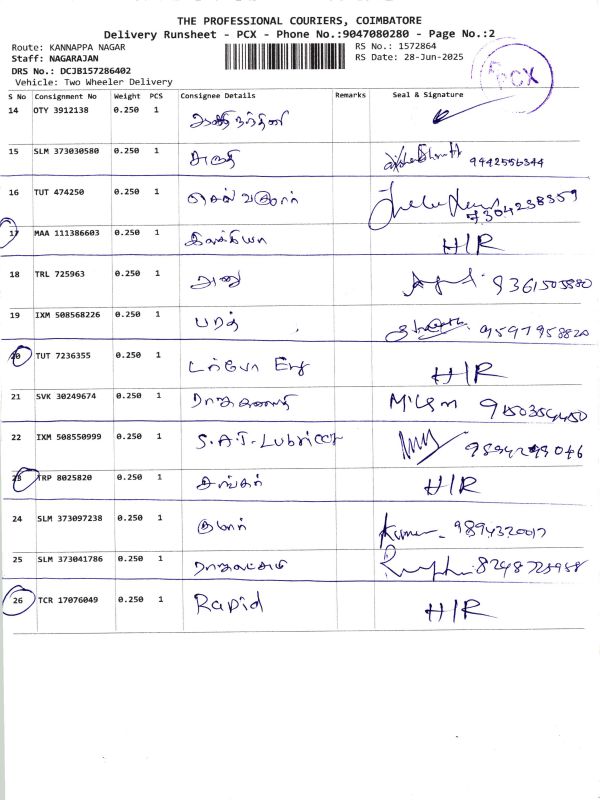 THE PROFESSIONAL COURIERS, COIMBATORE
Delivery Runsheet - PCX - Phone No.:9047080280 - Page No.:2
Route: KANNAPPA NAGAR
RS No.: 1572864
Staff: NAGARAJAN
RS Date: 28-Jun-2025
DRS No.: DCJB157286402
Vehicle: Two Wheeler Delivery
PCX
S No Consignment No Weight PCS Consignee Details Remarks Seal & Signature
14 OTY 3912138 0.250 1
15 SLM 373030580 0.250 1 அருதி 9442556344
16 TUT 474250 0.250 1 செல்வகுமார் 9304238359
17 MAA 111386603 0.250 1 இலக்கியா H/R
18 TRL 725963 0.250 1 அனு 9361505880
19 IXM 508568226 0.250 1 பரத் 9597958820
20 TUT 7236355 0.250 1 டர்போ Eng H/R
21 SVK 30249674 0.250 1 9150354450
22 IXM 508550999 0.250 1 S.A.T. Lubricct 9894299046
23 TRP 8025820 0.250 1 சங்கர் H/R
24 SLM 373097238 0.250 1 குமார் Kumar 9894320017
25 SLM 373041786 0.250 1 ராஜலட்சுமி 8248725958
26 TCR 17076049 0.250 1 Rapid H/R